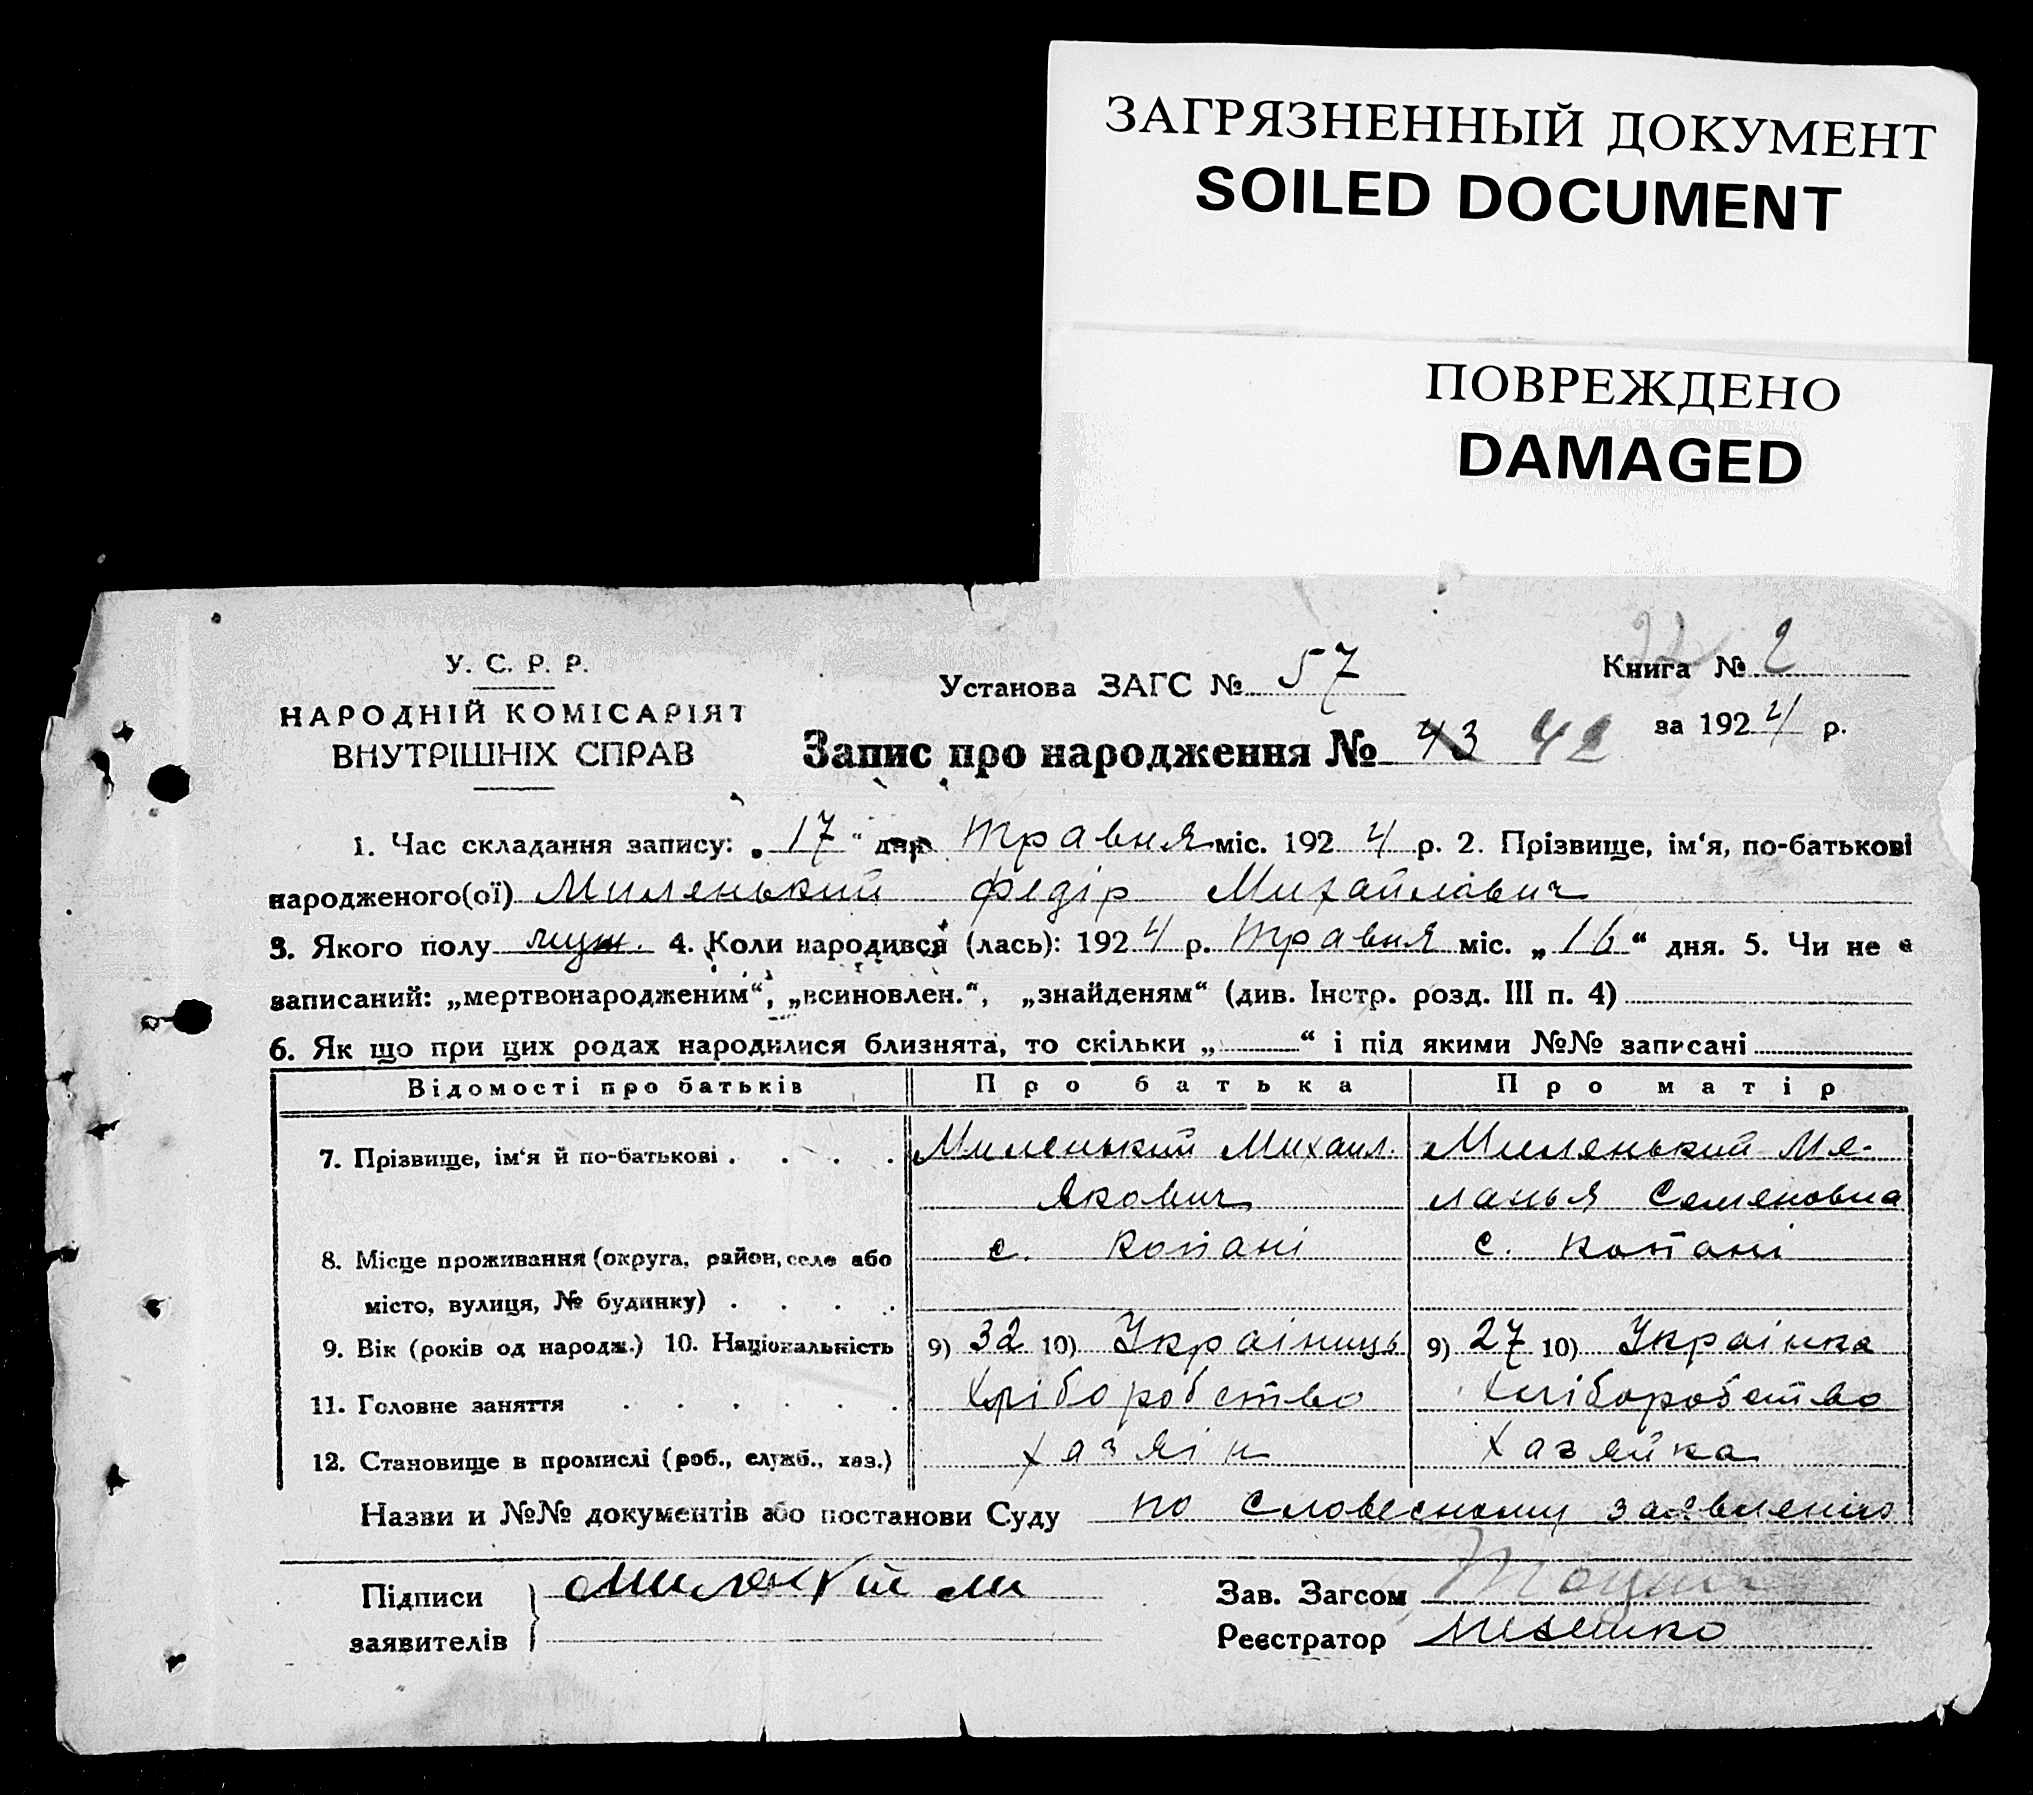 ЗАГРЯЗНЕННЫЙ ДОКУМЕНТ
SOILED DOCUMENT
ПОВРЕЖДЕНО
DAMAGED
У. С. Р. Р.
НАРОДНІЙ КОМІСАРІЯТ
ВНУТРІШНІХ СПРАВ
Установа ЗАГС № 57
Книга № 2
за 1924 р.
Запис про народження № 43 42
1. Час складання запису: „17“ дня травня міс. 1924 р. 2. Прізвище, ім‘я, по-батькові
народженого(ої) Миленький Федір Михайлович
3. Якого полу муж. 4. Коли народився (лась): 1924 р. травня міс. „16“ дня. 5. Чи не є
записаний: „мертвонародженим“, „всиновлен.“, „знайденям“ (див. Інстр. розд. III п. 4)
6. Як що при цих родах народилися близнята, то скільки „ “ і під якими №№ записані
Відомості про батьків Про батька Про матір
7. Прізвище, ім‘я й по-батькові . . . . Миленький Михаил. Миленький Ме-
Якович ланья Семеновна
8. Місце проживання (округа, район, село або с. Копані с. Копані
місто, вулиця, № будинку) . . . .
9. Вік (років од народж.) 10. Національність 9) 32 10) Українець 9) 27 10) Українка
11. Головне заняття . . . . . . хліборобство хліборобство
12. Становище в промислі (роб., служб., хаз.) хазяін хазяйка
Назви и №№ документів або постанови Суду по словесному заявленію
Підписи
заявителів
Зав. Загсом
Реєстратор